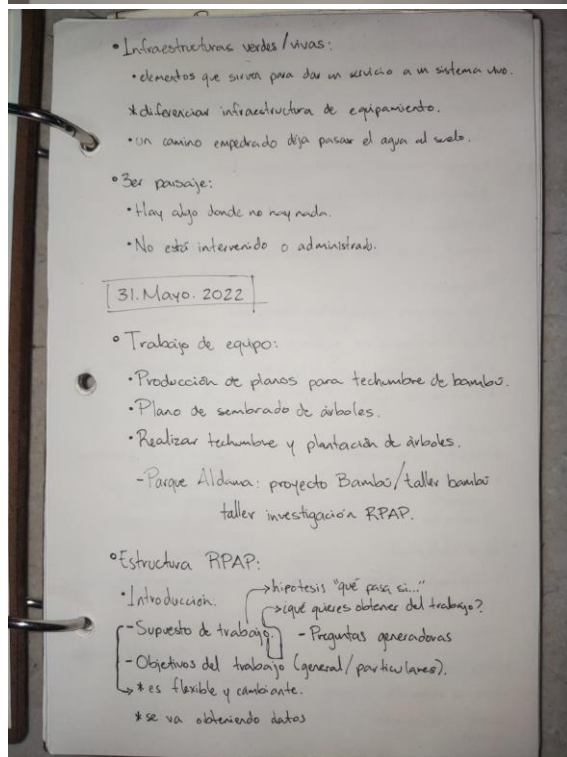 • Infraestructuras verdes/vivas:
• elementos que sirven para dar un servicio a un sistema vivo.
* diferenciar infraestructura de equipamiento.
• un camino empedrado deja pasar el agua al suelo.
• 3er paisaje:
• Hay algo donde no hay nada.
• No está intervenido o administrado.
31. Mayo. 2022
• Trabajo de equipo:
• Producción de planos para techumbre de bambú.
• Plano de sembrado de árboles.
• Realizar techumbre y plantación de árboles.
- Parque Aldama: proyecto Bambú/taller bambú
taller investigación RPAP.
• Estructura RPAP:
→ hipotesis "qué pasa si..."
• Introducción. → ¿qué quieres obtener del trabajo?
- Supuesto de trabajo. - Preguntas generadoras
- Objetivos del trabajo (general/particulares).
→ * es flexible y cambiante.
* se va obteniendo datos